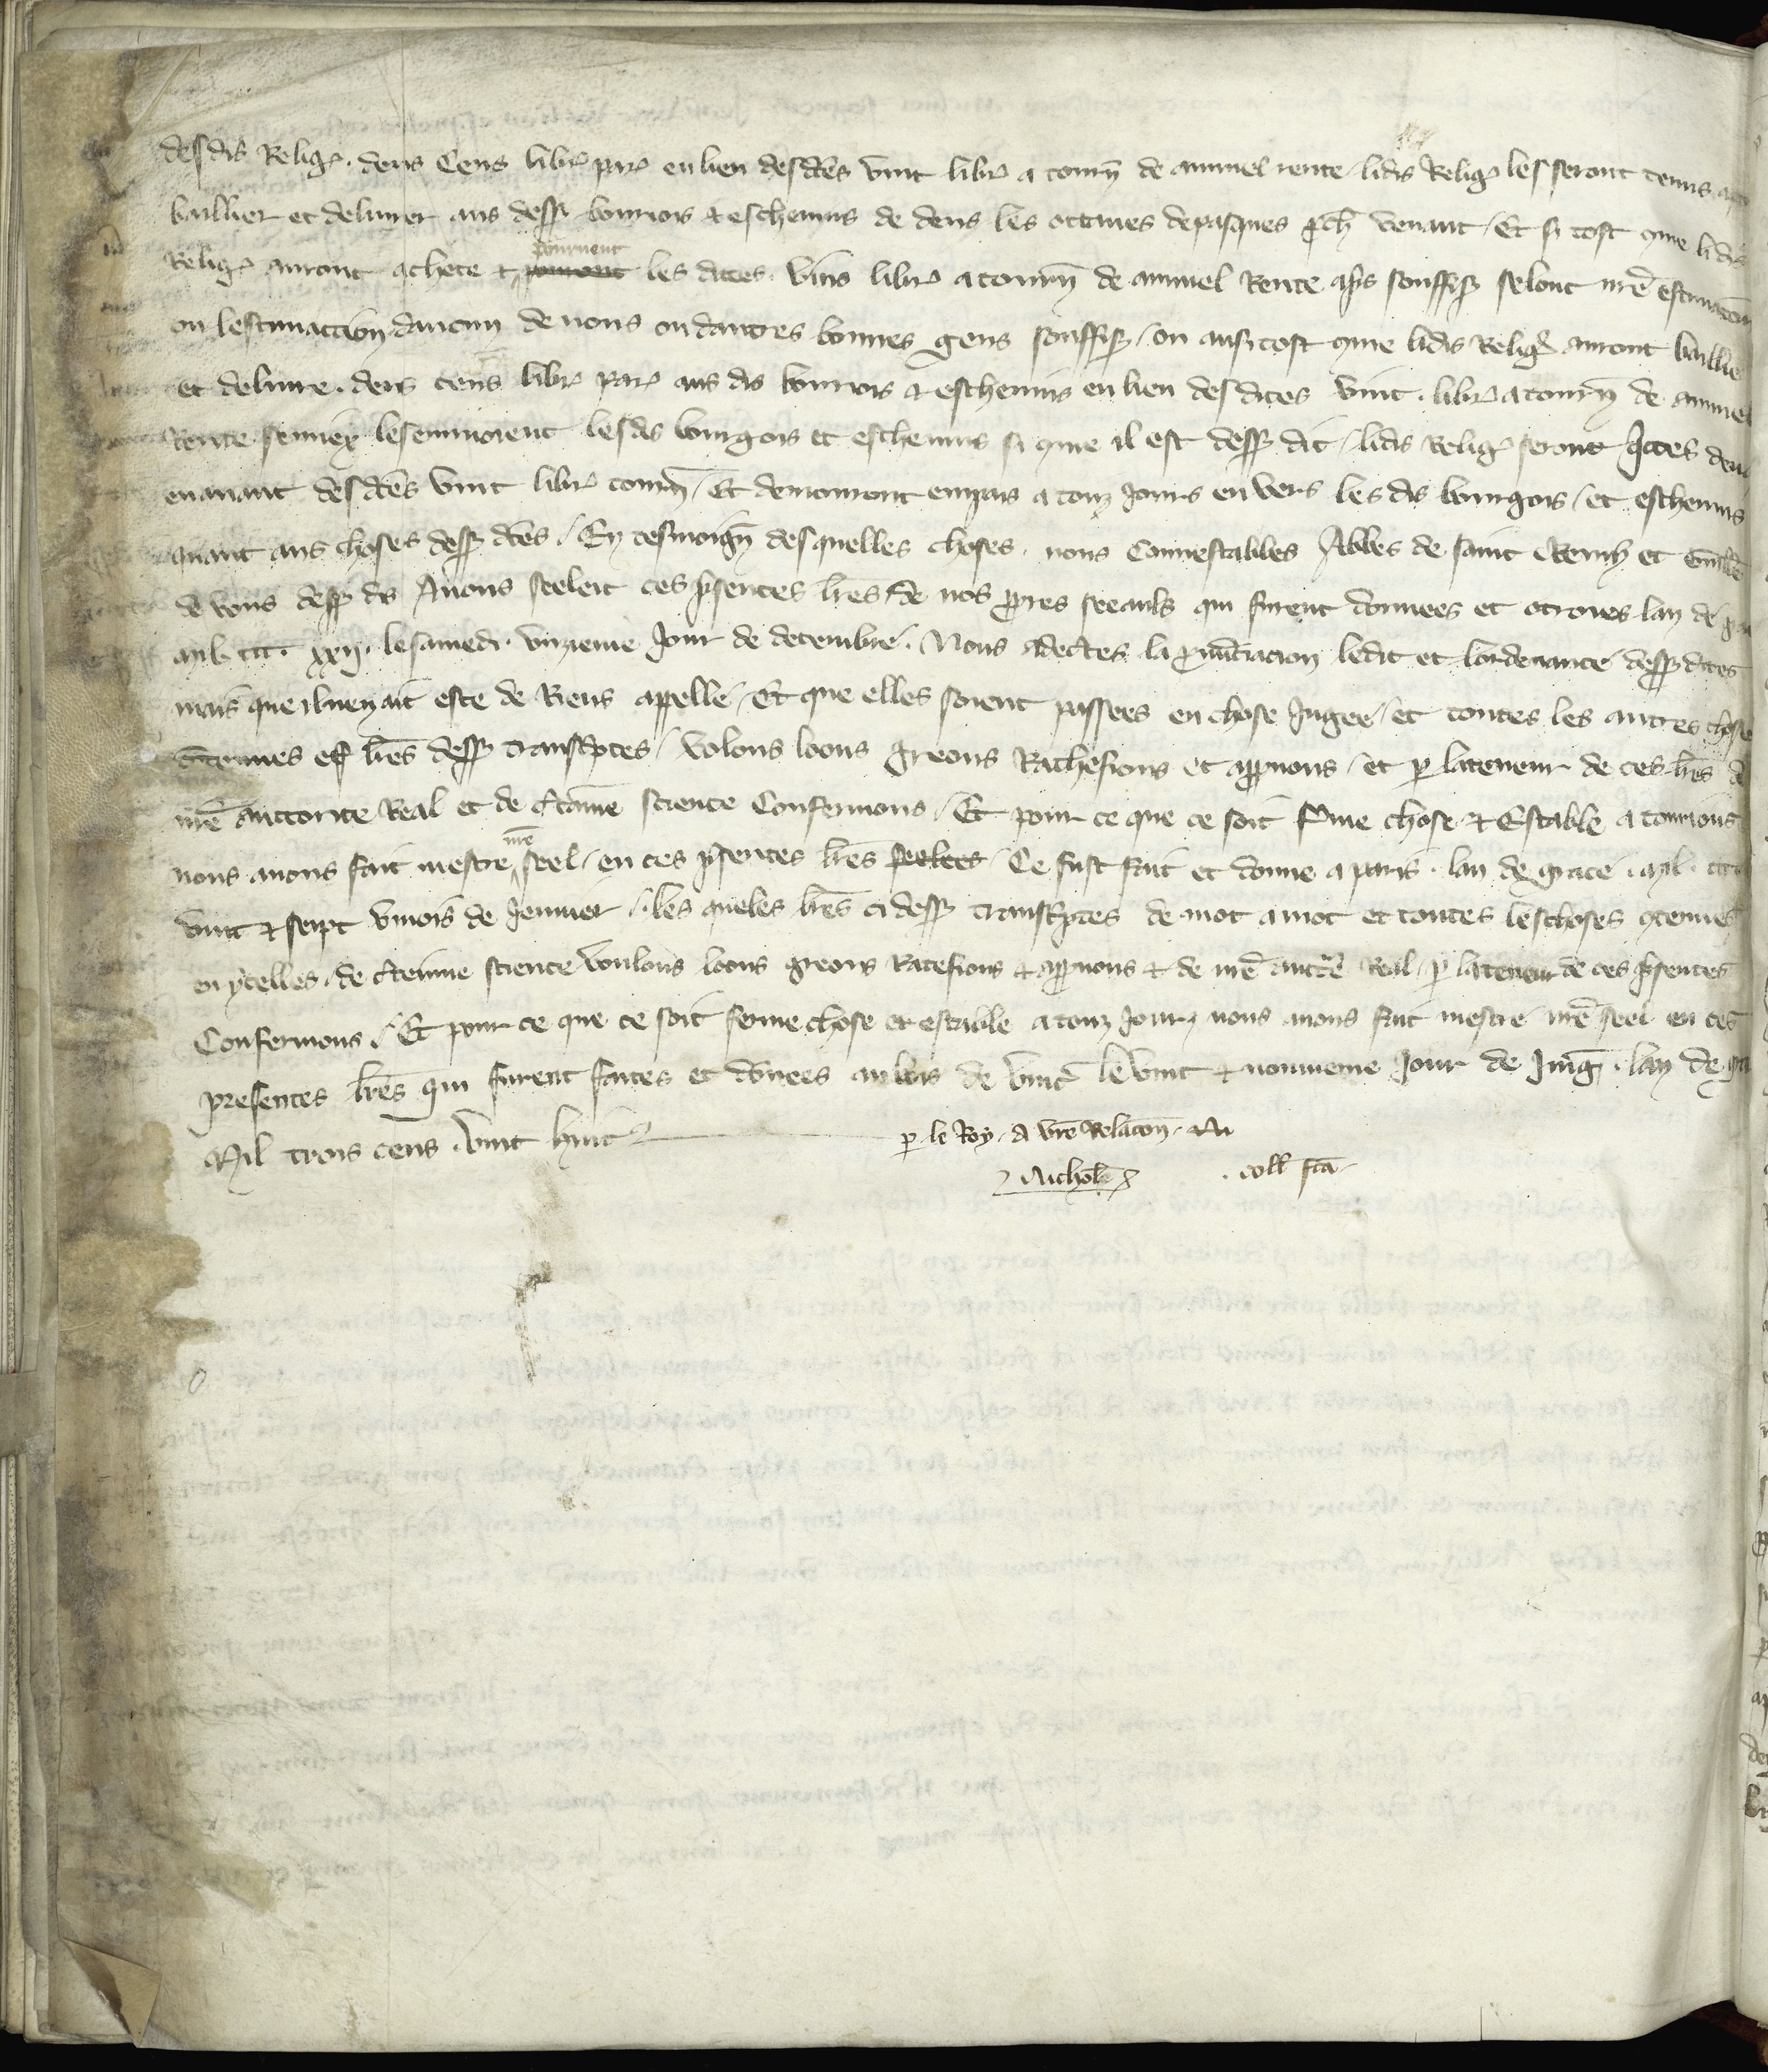 desdis Religˀ. deus Cens librˀ parˀ en lieu desdc̄es vint librˀ a tourñ de annuel rente / lidis Religˀ les seront tenus
baillier et delivrer aus dessꝰ bourios & eschevins de dens les octaves de pasques ꝓch venant / Et si tost que lidis
pourvent
Religˀ auront achete & pouront les dites. vins librˀ a tourñ de annuel Rente ap̄s souffisꝰ selonc nr̄e estimacō̄n
ou lestimaction daucun de nous ou dautres bonnes gens souffisꝰ / ou ausitost que lidis Religˀ auront baillié
et delivre. deus cens librˀ parˀ aus dis bouriois & eschevins en lieu desdites vint. librˀ a tourñ de annuel
Rente lesdis bourgois et eschevins si que il est dessꝰ dit / lidis Religˀ seront q̄ttes
en avant desdc̄es vint librˀ tourñ / Et demouront en pais a touz Jours en vers les dis bourgois / et eschevins
quant aus choses dessꝰ dc̄es / En tesmoigñ des quelles choses. nous Connestables Abbes de saint Remy et
de vous dessꝰ dis Avons seeleit ces p̄sentes lr̄es de nos ꝓpres seeauls qui furent donnees et otroies lan de
mil. ccc. xxij. le samedi. unzieme Jour de decembre. Nous adectes la ꝓnūciacion ledit et lordenance dessꝰ dites
mais que il nen ait este de Riens appelle / Et que elles soient passees en chose Jugee / et toutes les autres choses
9tenues es lr̄es dessꝰ transc̄ptes / volons loons greons Rathefions et aꝓuons / et ꝑ la teneur de ces lr̄es de
nr̄e auctorite Real et de c̄taine science Confermons / Et pour ce que ce soit f̄me chose & Estable a tousiours
nr̄e
nous avons fait mestre seel / en ces p̄sentes lr̄es seelees / Ce fust fait et donne a paris. lan de grace. mil. ccc
vint & sept ou mois de Jenvier / les queles lr̄es ci dessꝰ transc̄ptes de mot a mot et toutes les choses 9tenues
en ycelles. de c̄teinne science voulons loons greons Ratefions & aꝓuons & de nr̄e auct̄e Real / ꝑ la teneur de ces p̄sentes
Confermons / Et pour ce que ce soit ferme chose et estable a touz Jours nous avons fait mestre nr̄e seel en ces
presentes lr̄es qui furent faites et dōnees au bois de vinc̄ le vint & nouvieme Jour de Juing. lan de gra
Mil trois cens. vint huit
ꝑ le Roy. a vr̄e Relacōn.
Nichol̄. coll̄ fc̄a